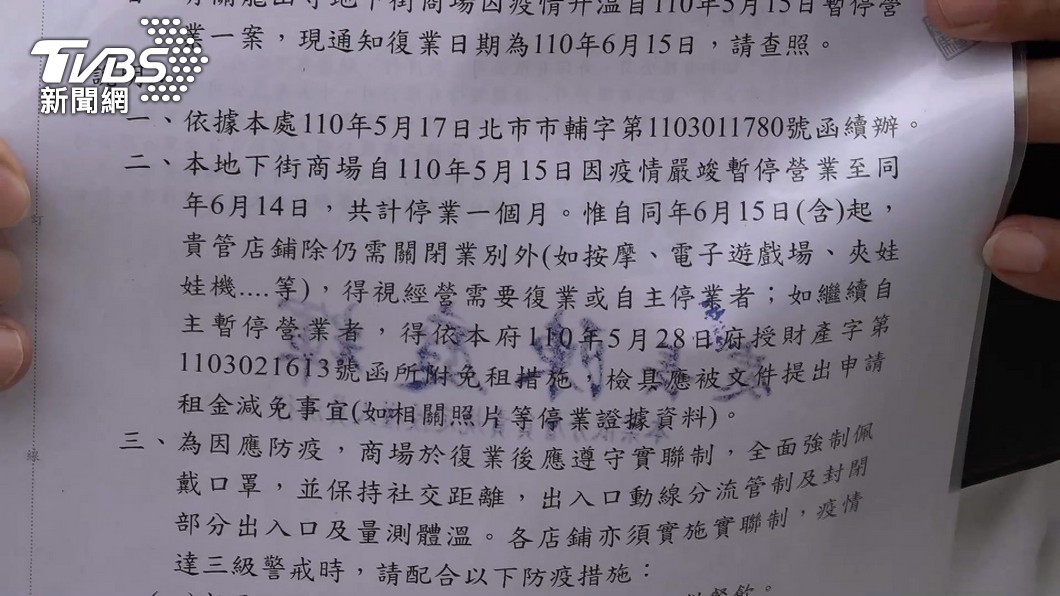 有關龍山寺地下街商場因疫情升溫自110年5月15日暫停營
業一案，現通知復業日期為110年6月15日，請查照。
TVBS
新聞網
一、依據本處110年5月17日北市市輔字第1103011780號函續辦。
二、本地下街商場自110年5月15日因疫情嚴竣暫停營業至同
年6月14日，共計停業一個月。惟自同年6月15日(含)起，
貴管店鋪除仍需關閉業別外(如按摩、電子遊戲場、夾娃
娃機....等)，得視經營需要復業或自主停業者；如繼續自
主暫停營業者，得依本府110年5月28日府授財產字第
1103021613號函所附免租措施，檢具應被文件提出申請
租金減免事宜(如相關照片等停業證據資料)。
三、為因應防疫，商場於復業後應遵守實聯制，全面強制佩
戴口罩，並保持社交距離，出入口動線分流管制及封閉
部分出入口及量測體溫。各店鋪亦須實施實聯制，疫情
達三級警戒時，請配合以下防疫措施：
訂
線